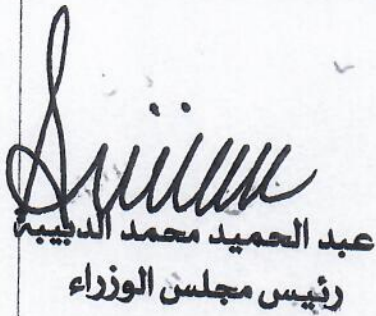 عبد الحميد محمد الدبيبة
رئيس مجلس الوزراء